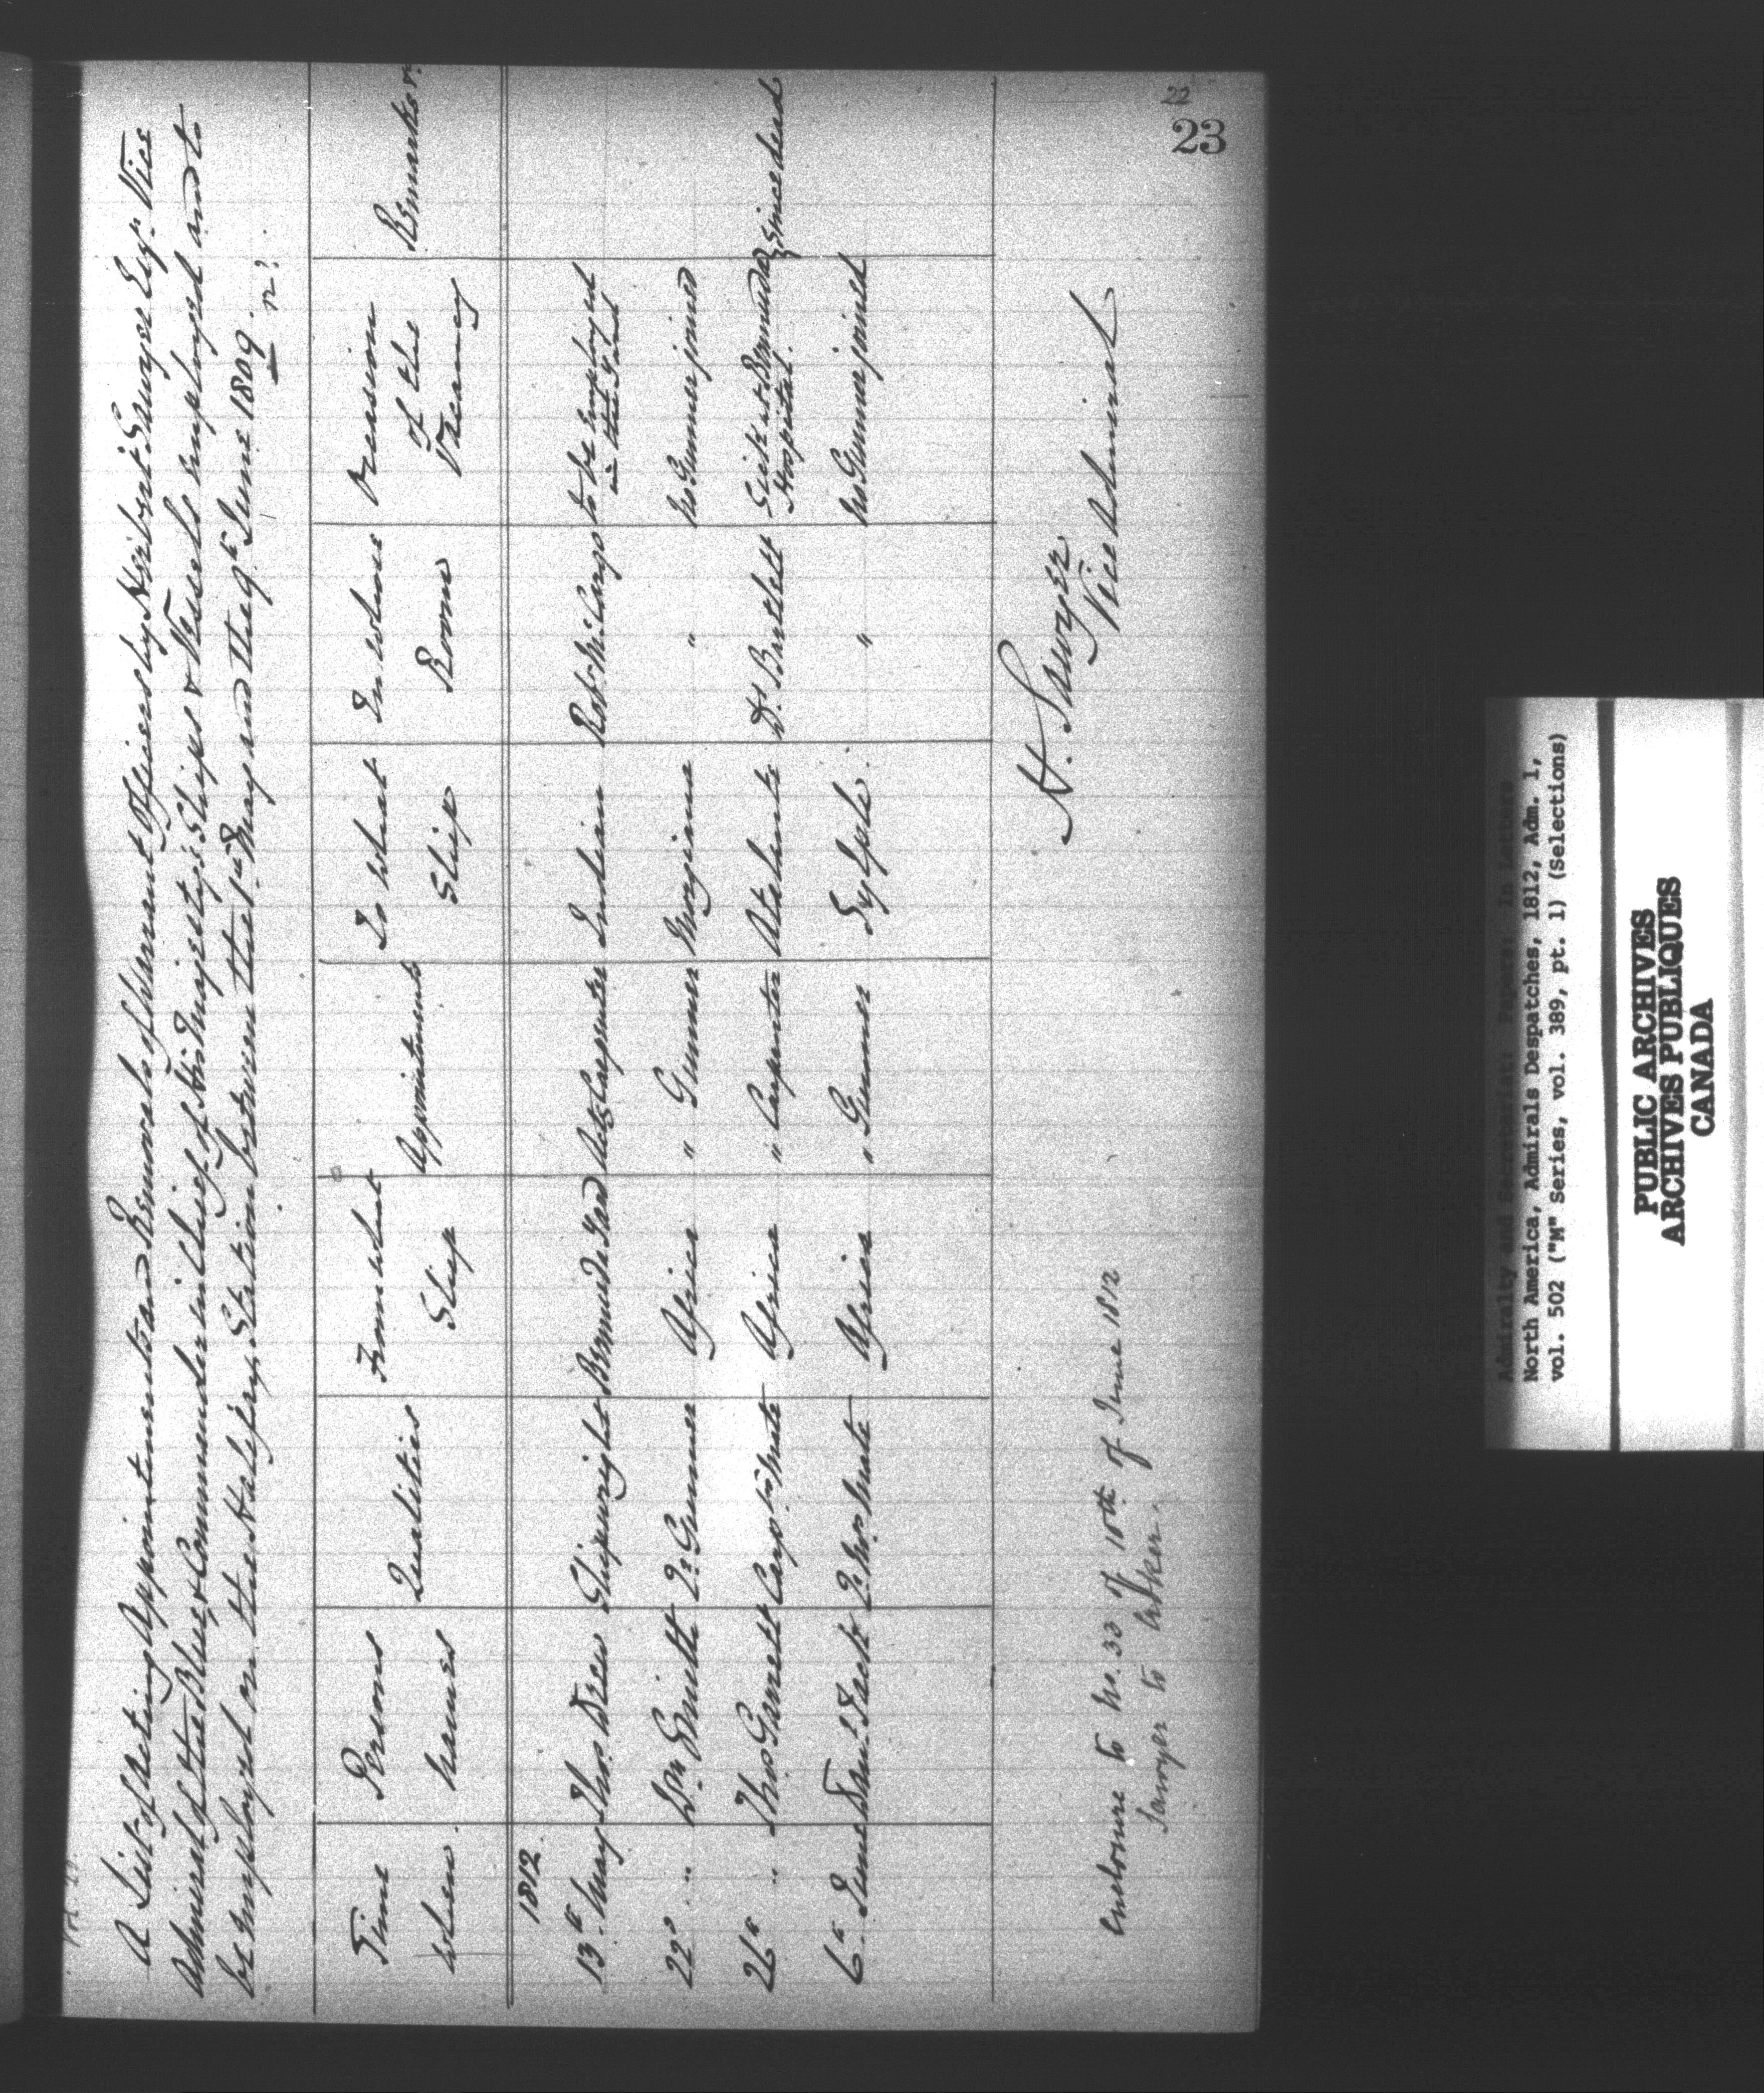 A List of Acting Appointments and Removals of Warrant Officers by Herbert Sawyer Esqr. Vice
Admiral of the Blue, & Commander in Chief of His Majesty's Ships & Vessels employed and to
be employed on the Halifax Station between the 1st May and the 9th June 1809.
n?
Time when. Persons names Qualities From what Ship Appointments To what Ship In whose Room Occasion of the Vacancy Remarks
1812.
13th May Thos Drew Shipwright Bermuda Yard Actg Carpenter Indian Robt McCargo to be employed in that Yard
22d " Wm Smith Qr Gunner Africa " Gunner Morgiana " No Gunner joined
26th " Thos Garrett Carps Mate Africa " Carpenter Atalante Ds Bartlett Sick at Bermuda Hospital. Since dead
6th June Saml Jack Qr Mrs Mate Africa " Gunner Sylph. " No Gunner joined
H. Sawyer
Vice Admiral
Enclosure to No. 33 of 10th of June 1812
Sawyer to Croker.
22
23
Admiralty and Secretariat: Papers: In Letters
North America, Admirals Despatches, 1812, Adm. 1,
vol. 502 ("M" Series, vol. 389, pt. 1) (Selections)
PUBLIC ARCHIVES
ARCHIVES PUBLIQUES
CANADA